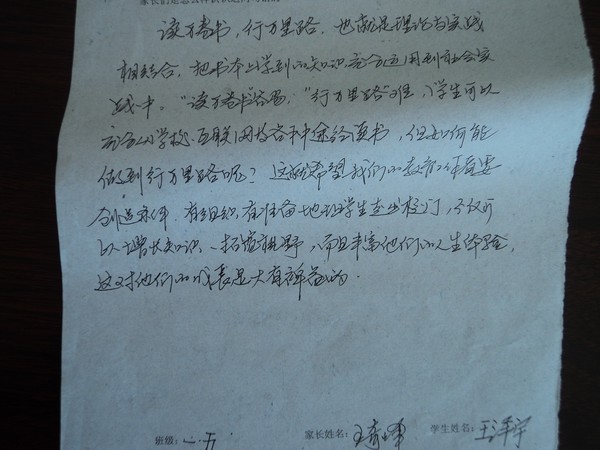 读万卷书，行万里路，也就是理论与实践
相结合，把书本上学到的知识充分运用到社会实
践中。“读万卷书”容易，“行万里路”难，学生可以
充分从学校、互联网等各种途径读书，但如何能
做到行万里路呢？这就希望我们的教育工作者要
创造条件，有组织、有准备地让学生走出校门，不仅可
以增长知识、拓宽视野，而且丰富他们的人生经验，
这对他们的成长是大有裨益的.
班级：一.五 家长姓名： 学生姓名：